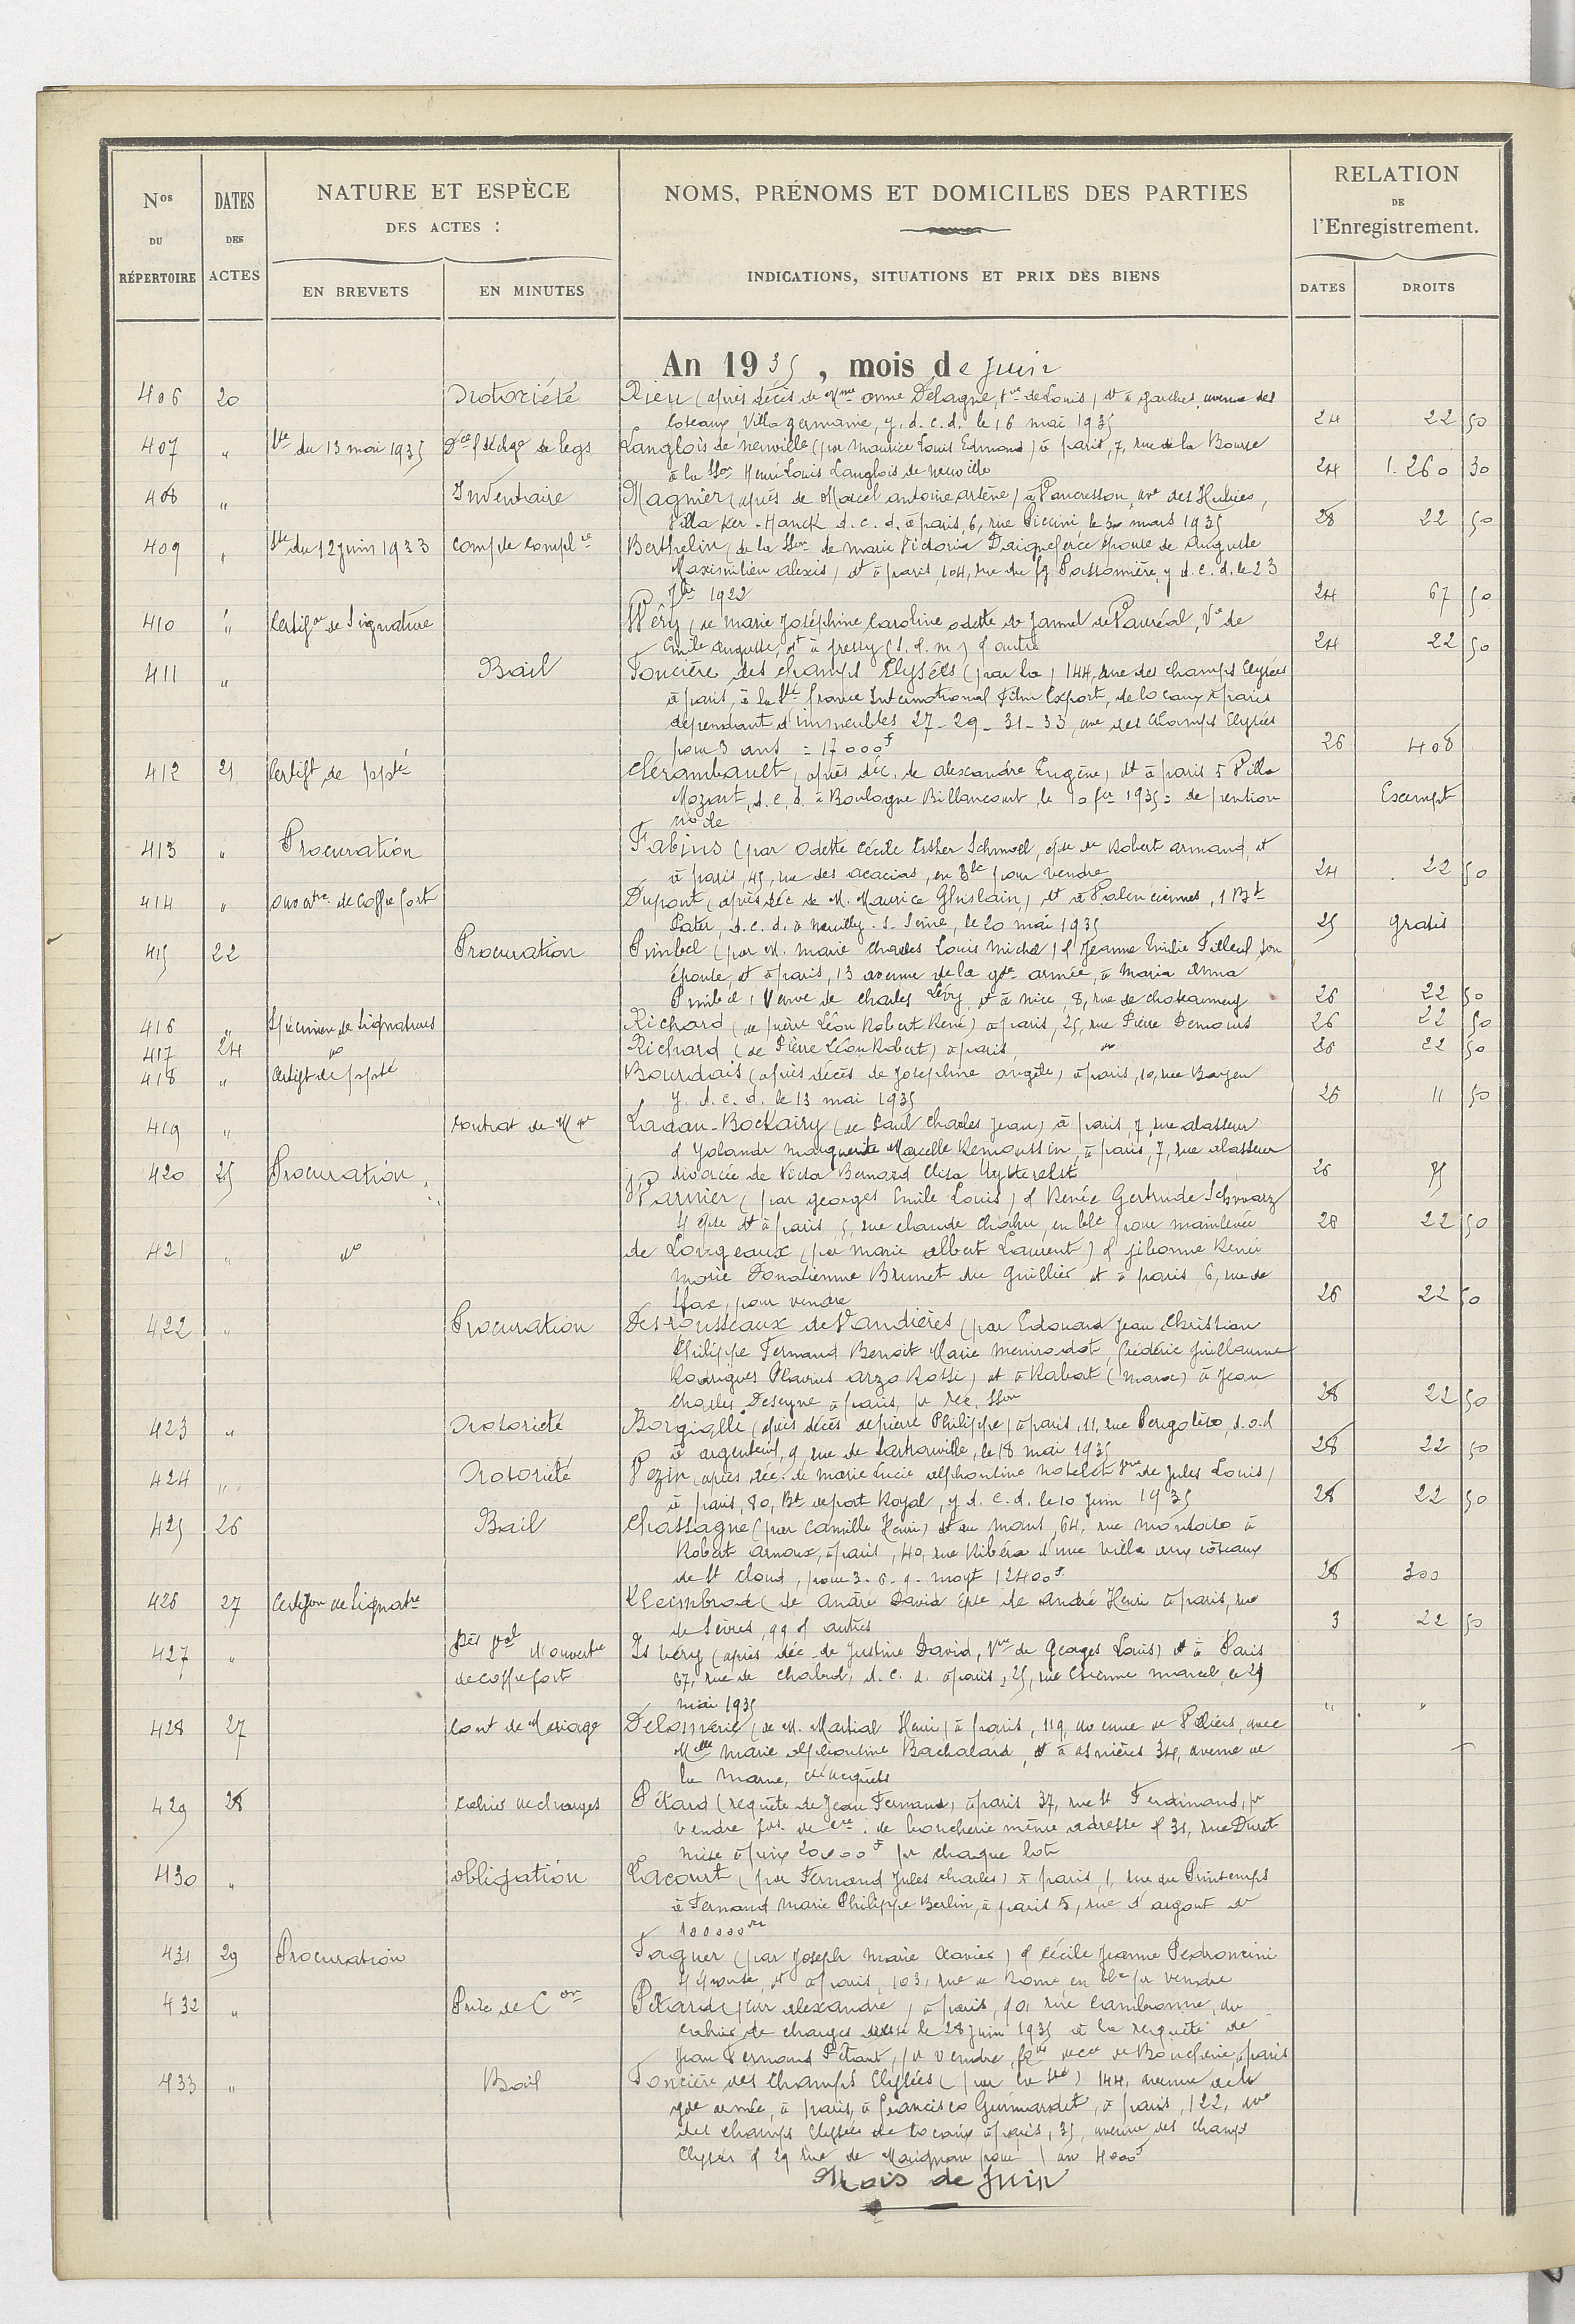 Nos DU RÉPERTOIRE
DATES DES ACTES
NATURE ET ESPÈCE DES ACTES :
EN BREVETS
EN MINUTES
NOMS, PRÉNOMS ET DOMICILES DES PARTIES
INDICATIONS, SITUATIONS ET PRIX DES BIENS
RELATION DE l'Enregistrement.
DATES
DROITS
An 1935, mois de Juin
406 20 Notoriété Rieu (après décès de Mme Anne Delagne, Vve de Louis) dt à Garches, avenue des
Coteaux, Villa Germaine, y. d. c. d. le 16 mai 1935 24 22 50
407 " Vte du 13 mai 1935 de legs Langlois de Neuville (par Maurice Louis Edmond) à Paris, 7, rue de la Bourse
à la Son Henri Louis Langlois de Neuville 24 1.260 30
408 " Inventaire Magnier (après de Marcel Antoine Arsène) à Vaucresson, ave des
Villa Ker-Hanck d. c. d. à Paris, 6, rue Piccini le 30 mars 1935 28 22 50
409 " Ste du 12 juin 1933 Comp de Compl Berthelin (de la Son de Marie Victoria épouse de Auguste
Maximilien Alexis) dt à Paris, 104, rue du fg Poissonnière, y d. c. d. le 23
7bre 1922 24 67 50
410 " Certifon de Signature Wéry (de Marie Joséphine Caroline Odette de Jammel de Vauréal, Ve de
Emile Auguste, dt à Fressy & autre 24 22 50
411 " Bail Foncière des Champs Elysées (par la) 144, ave des Champs Elysées
à Paris, à la Sté France International Film Export, de locaux à Paris
dépendant d'immeubles 27-29-31-33, ave des Champs Elysées
pour 3 ans = 17000f 26 408
412 21 Certift de ppté Clérambault (après déc. de Alexandre Eugène) dt à Paris 5 Villa
Mozart, d. c. d. à Boulogne Billancourt, le 10 fer 1935 = de pention
Exempt
413 " Procuration Fabius (par Odette Cécile Esther Schmoll, épse de Robert Armand, dt
à Paris, 45, rue des Acacias, en Blc pour vendre 24 22 50
414 " ouvertre de coffre fort Dupont (après déc de M. Maurice Ghislain) dt à Valenciennes, 1 Bt
Pater, d. c. d. à Neuilly-s-Seine, le 20 mai 1935 25 gratis
415 22 Procuration Pimbel (par M. Marie Charles Louis Michel) & Jeanne Emilie Tilleul, son
épouse, dt à Paris, 13 avenue de la gde armée, à Maria Anna
Pimbel, Veuve de Charles Lévy, dt à Nice, 8, rue de Chateauneuf 26 22 50
416 " Spécimen de Signatures Richard (de Pierre Léon Robert René) à Paris, 25, rue Pierre Demours 26 22 50
417 24 do Richard (de Pierre Léon Robert) à Paris, do 26 22 50
418 " Certift de ppté Bourdais (après décès de Joséphine Angèle) à Paris, 10, rue Bayen
y. d. c. d. le 13 mai 1935 26 11 50
419 " Contrat de Mge Ladan-Bockairy (de Paul Charles Jean) à Paris, 7, rue Alasseur
& Yolande Marguerite Marcelle Remoussin, à Paris, 7, rue Alasseur
divorcée de Victor Bernard Elisa 26 75
420 25 Procuration Warnier (par Georges Emile Louis) & Renée Gertrude Schwarz
s/ épse dt à Paris, 5, rue Claude Chahu, en blc pour mainlevée 28 22 50
421 " do de Longeaux (par Marie Albert Laurent) & Renée
Marie Donatienne Brunet du Guillier dt à Paris 6, rue de
Sfax, pour vendre 26 22 50
422 " Procuration Desrousseaux de Vandières (par Edouard Jean Christian
Philippe Fernand Benoit Marie Frédéric Guillaume
Rodrigues) dt à Rabat (Maroc) à Jean
Charles Deseyne à Paris, pr rec. Son 28 22 50
423 " Notoriété Borgialli (après décès de Pierre Philippe) à Paris, 11, rue Pergolèse, d.c.d
à Argenteuil, 9, rue de Sartrouville, le 18 mai 1935 28 22 50
424 " Notoriété Pezin (après déc. de Marie Lucie Alphontine Vve de Jules Louis)
à Paris, 80, Bt de port Royal, y d. c. d. le 10 Juin 1935 28 22 50
425 26 Bail Chassagne (par Camille Henri) dt au Mans, 64, rue Montoise à
Robert Arnoux, à Paris, 40, rue Ribéra d'une villa aux côteaux
de St Cloud, pour 3-6-9- moyt 12400f 28 300
426 27 Certifon de Signatre Kleinbrod (de André David Epse de André Henri à Paris, rue
de Sèvres, 99 & autres 3 22 50
427 " d'ouvertre
de coffre fort Is Véry (après déc. de Justine David, Vve de Georges Louis) dt à Paris
67, rue de Chabrol, d. c. d. à Paris, 25, rue Etienne Marcel, le 29
mai 1935 " "
428 27 Cont de Mariage (de M. Martial Henri) à Paris, 119, avenue de Villiers, avec
Melle Marie Alphontine Bachalard, dt à Asnières 34, avenue de
la Marne,
429 28 Cahier de charges Pétard (requête de Jean Fernand) à Paris 37, rue St Ferdinand, pr
vendre fds de cce de boucherie même adresse & 31, rue Duret
mise à prix 20.000f pr chaque lot
430 " Obligation Lacourt (par Fernand Jules Charles) à Paris, 1, rue du Printemps
à Fernand Marie Philippe Berlin, à Paris 5, rue d'Argout de
100000
431 29 Procuration Foiguer (par Joseph Marie Xavier) & Cécile Jeanne Pedroncini
s/ épouse, dt à Paris, 103, rue de Rome en blc pr vendre
432 " Prise de Con Pétard (par Alexandre) à Paris, 90, rue Cambronne, du
cahier de charges dressé le 28 Juin 1935 à la requête de
Jean Fernand Pétard, pr vendre fds de cce de Boucherie, à Paris
433 " Bail Foncière des Champs Elysées (par la sté) 144, avenue de la
gde armée, à Paris, à Francisco, à Paris, 122, ave
des Champs Elysées de locaux à Paris, 35, avenue des Champs
Elysées & 29 rue de Marignan pour 1 an 4000f
Mois de Juin